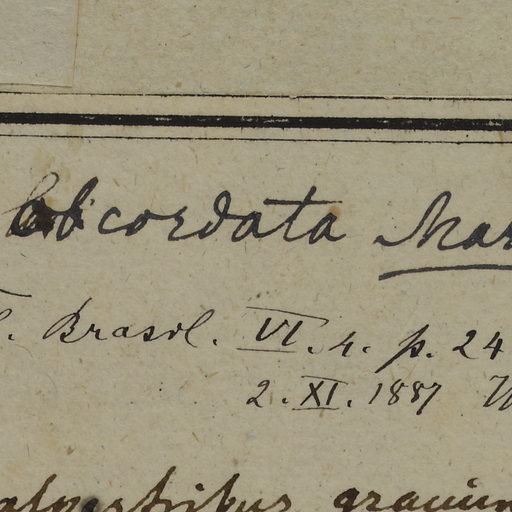 obcordata Mar
. Brasil. VI. 4. p. 24
2. XI. 1887 W
alpestribus